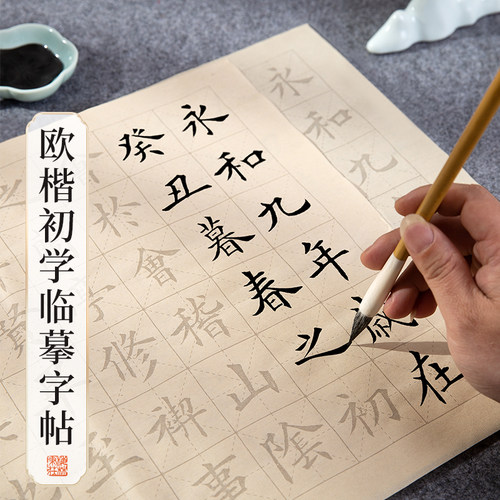 欧楷初学临摹字帖
永和九
永和九年歲在
癸丑暮春之初
於會稽山陰
修禊事